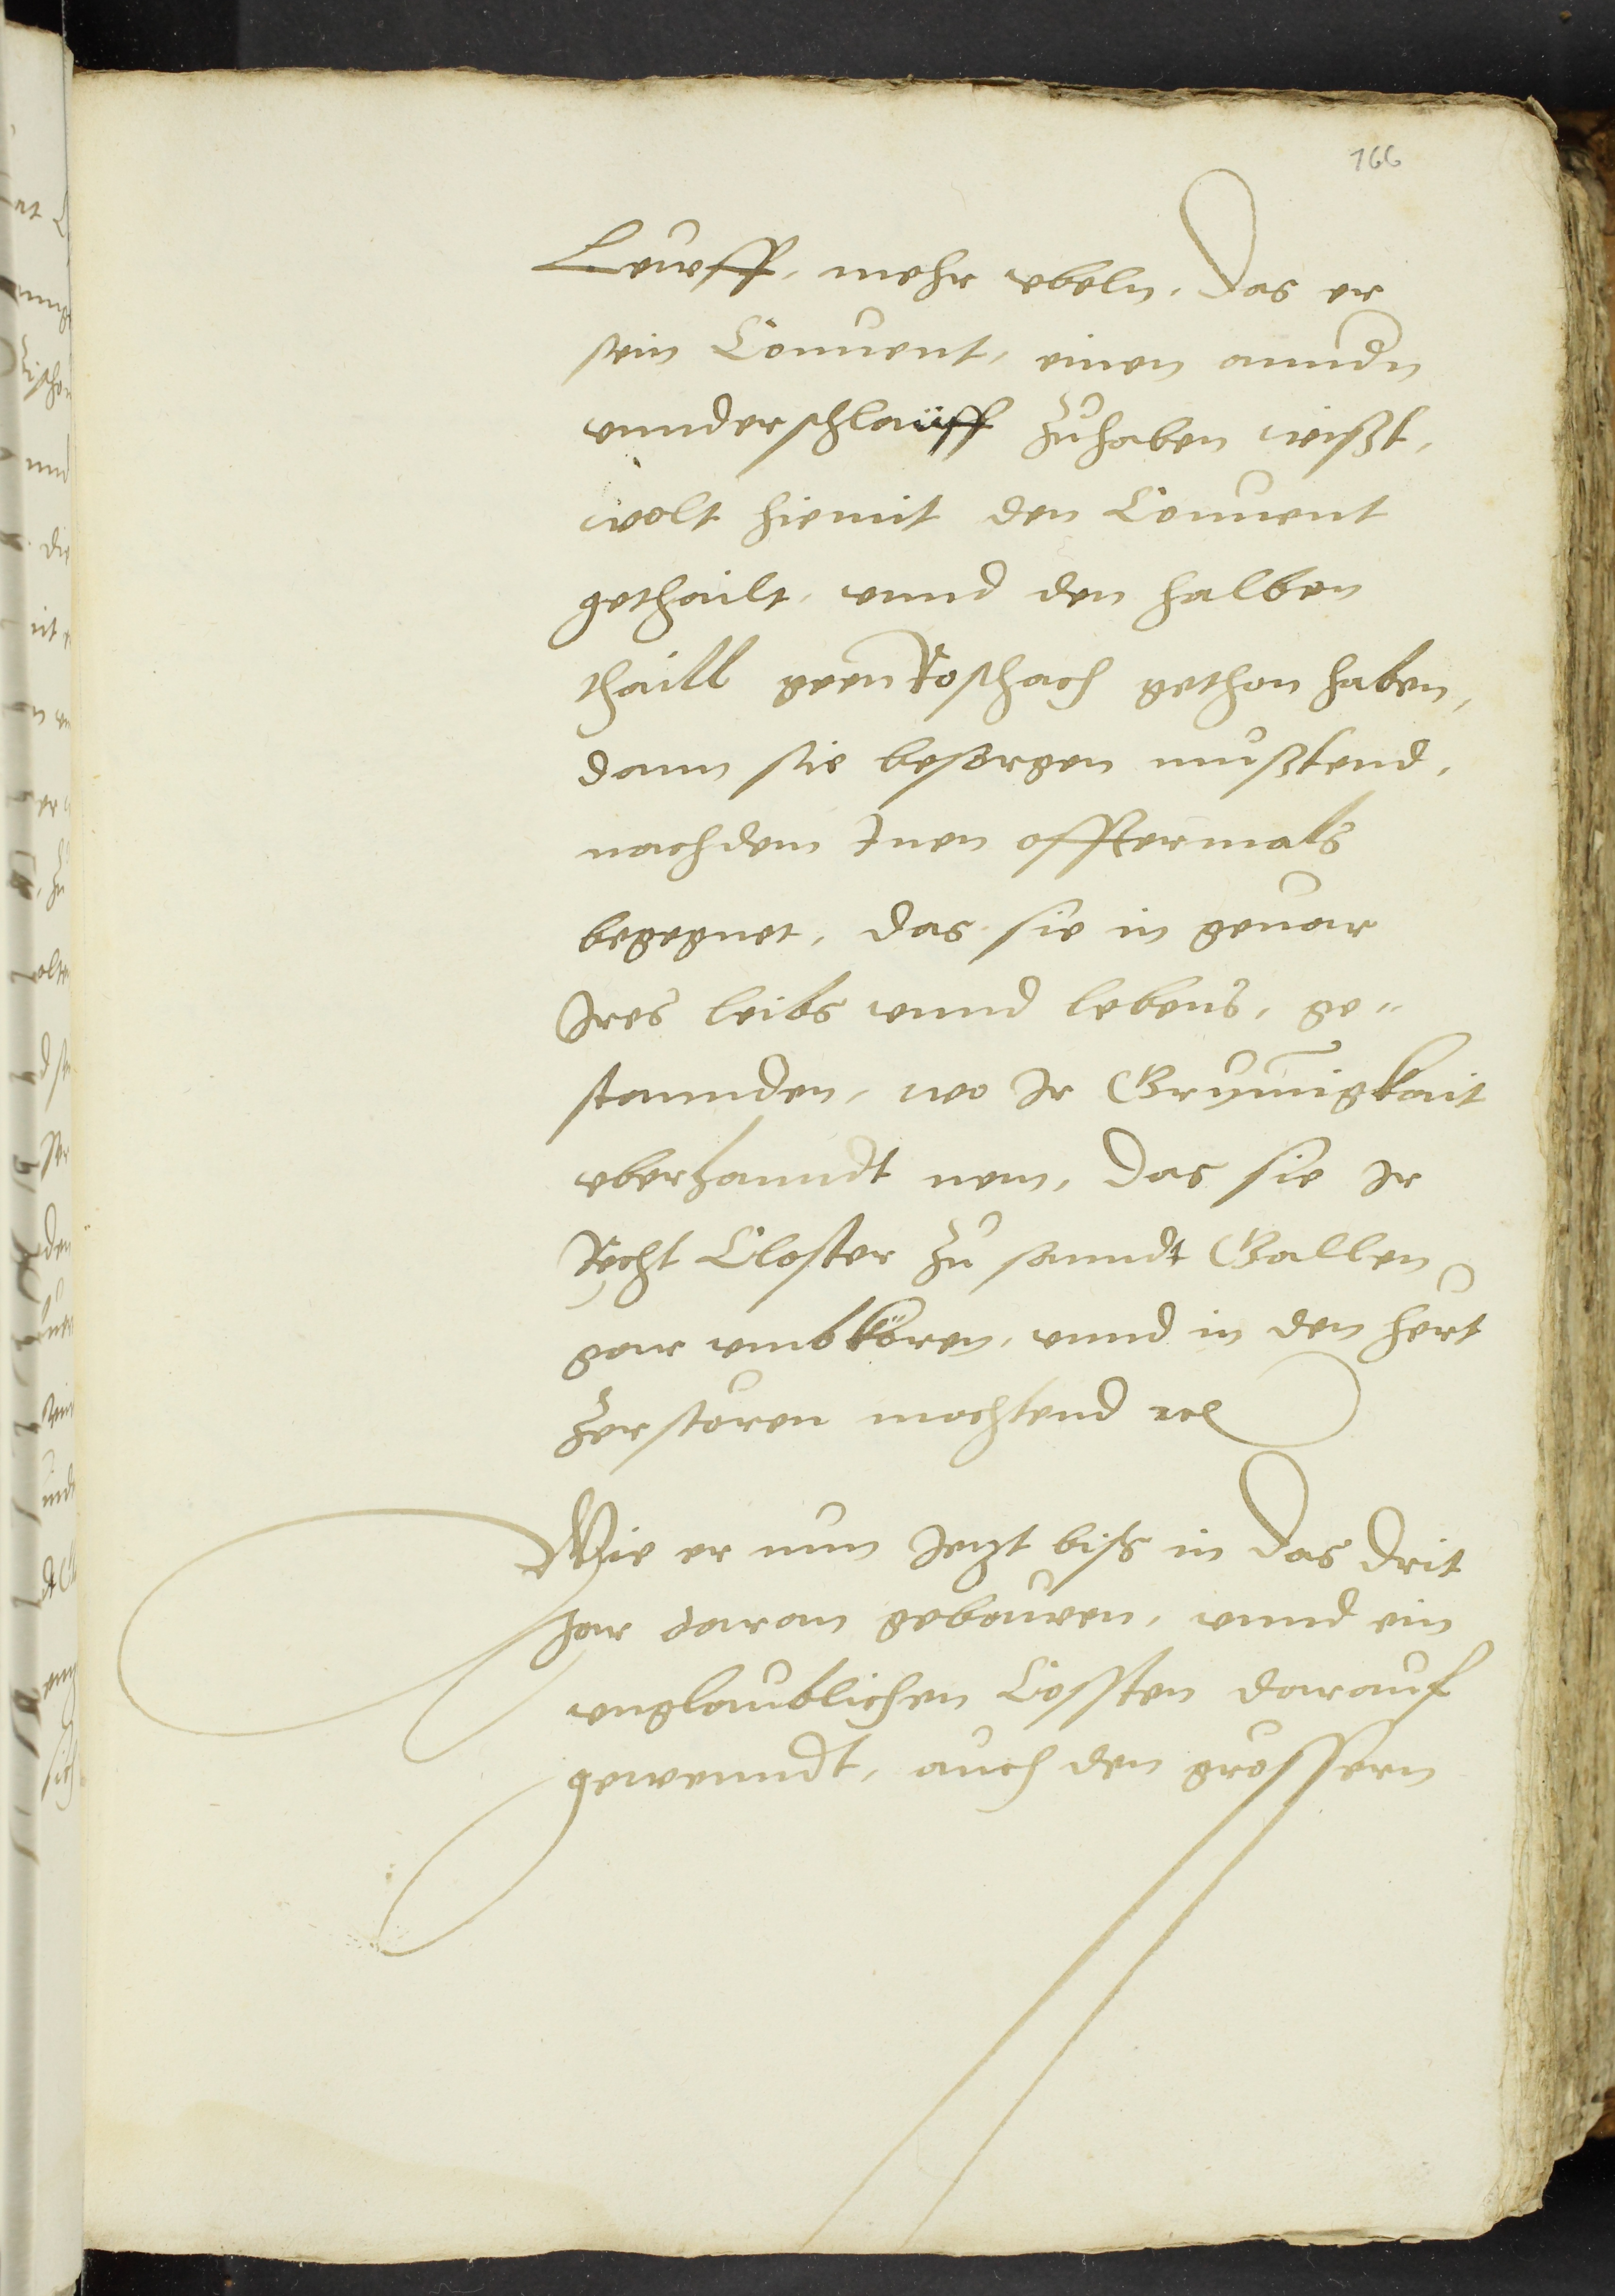 166
Leüeff, mehr ebeln, das er
sein Conuent, einen anndn
vnnderschlaüff zuhaben wißt,
wolt hiemit den Conuent
gethailt, vnnd den halben
thaill geen Roschach gethon haben,
dann sie besorgen mußtend,
nachdem Jnen offtermals
begegnet, das sie in geuar
Jres leibs vnnd lebens, ge„
stannden, wo Jr Grymigkait
vberhanndt nem, das sie Jr
Recht Closter zu sanndt Gallen
gar vmbkören, vnnd in den hert
zerstören mochtend ꝛc
Wie er nun Jetzt biß in das drit
Jar daran gebauwen, vnnd ein
vnglaublichen Cossten darauf
gewenndt, auch den grossern